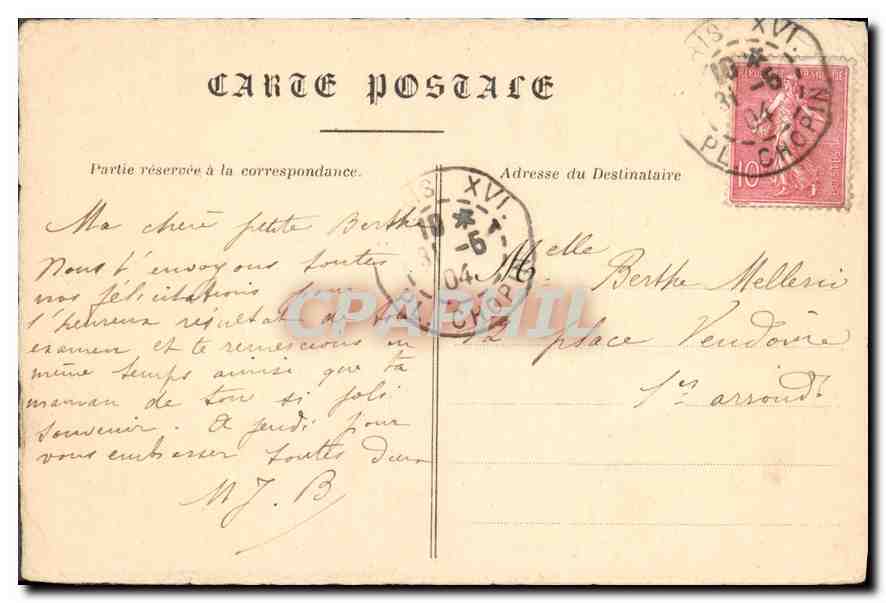 CARTE POSTALE
Partie réservée à la correspondance.
Adresse du Destinataire
Ma chère petite Berthe
Nous t'envoyons toutes
nos félicitations pour
l'heureux résultat de ton
examen et te remercions en
même temps ainsi que ta
maman de ton si joli
souvenir. A jeudi pour
vous embrasser toutes deux
M J. B
Melle Berthe Mellerio
12 place Vendôme
1er arrondt
PARIS XVI.
10 *
31 -5
04
PL. CHOPIN
PARIS XVI.
10 *
31 -5
04
PL. CHOPIN
10
POSTES
CPAPHIL